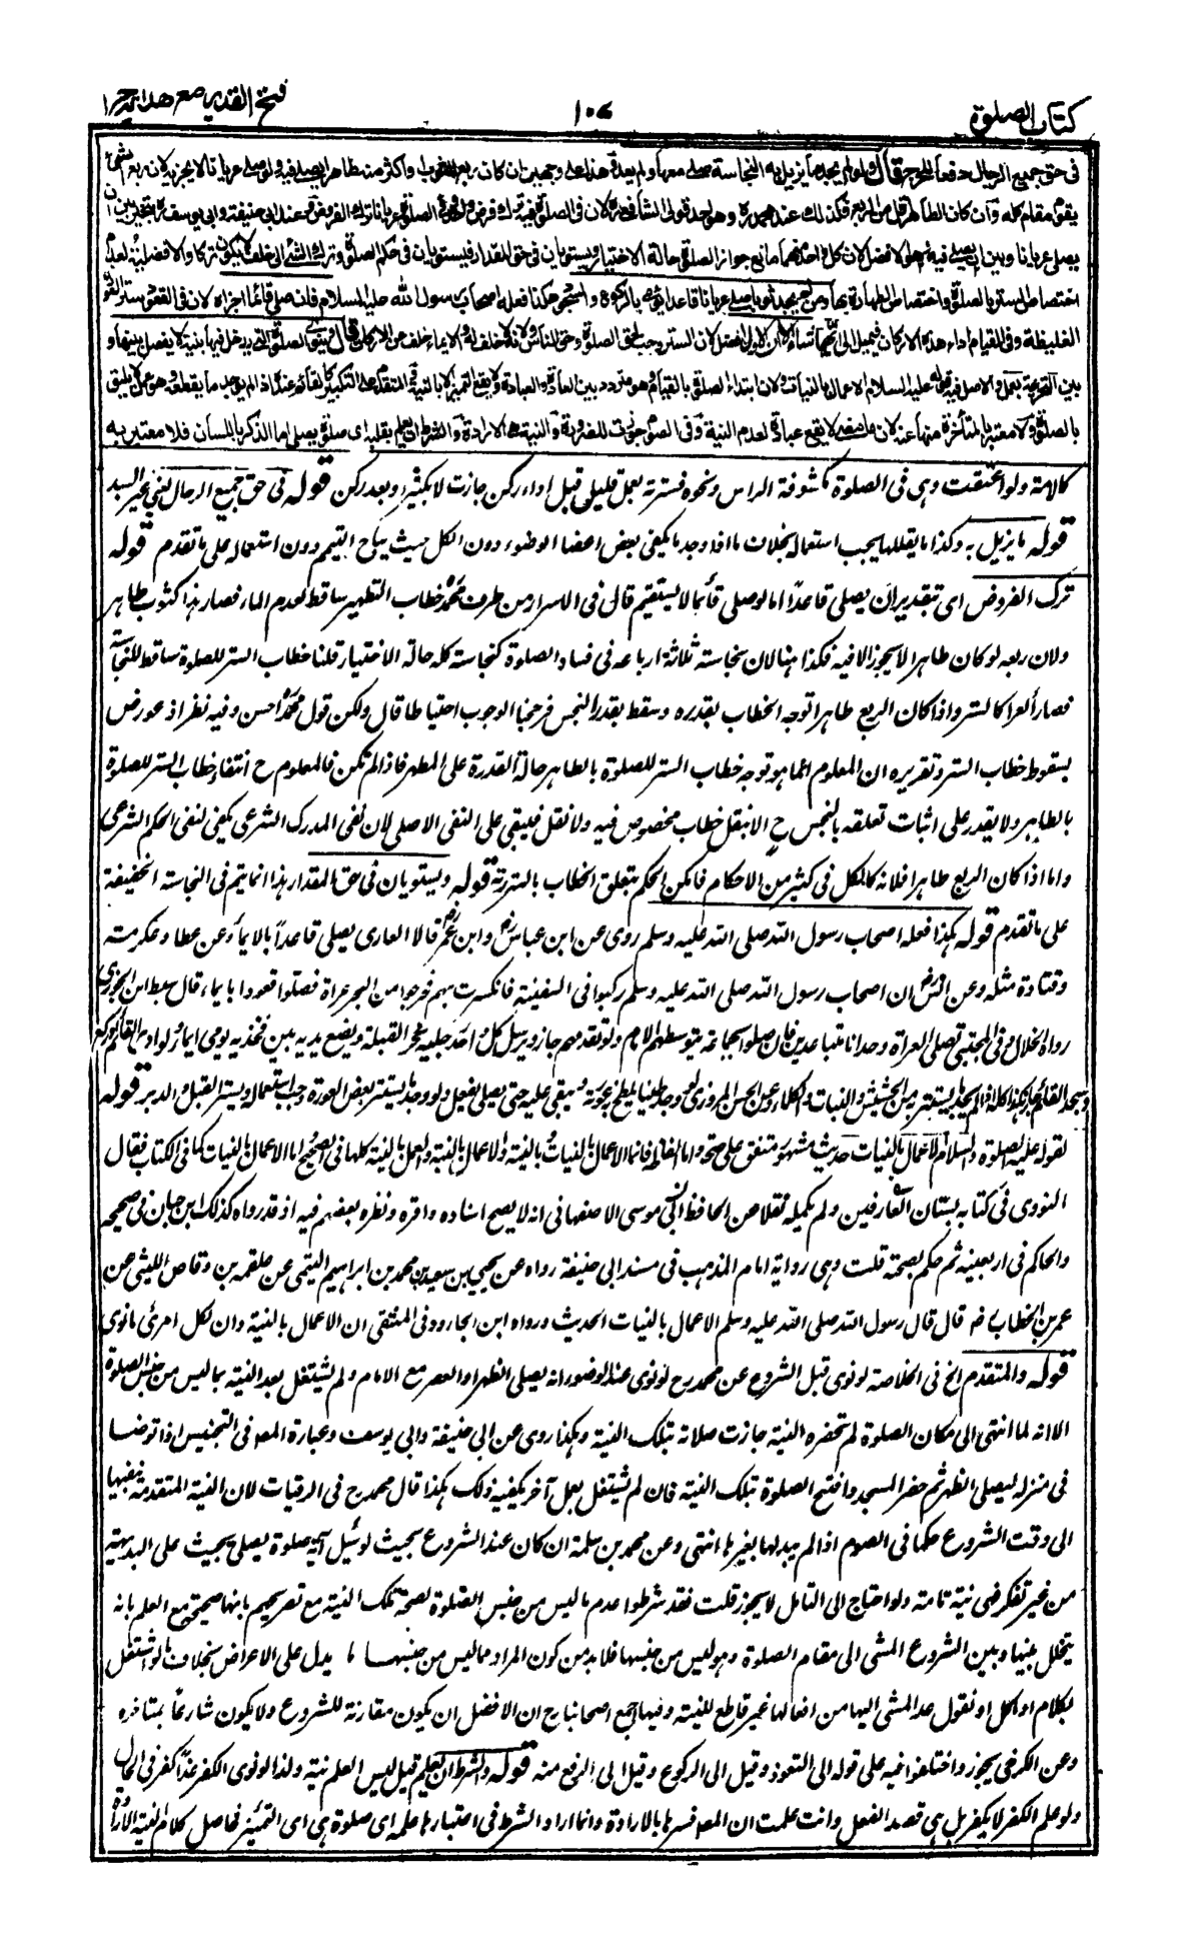 كتاب الصلوة
١٠٧
فتح القدير مع هدايه ج ١
فى حق جميع الرجال دفعا للحرج قال ولو لم يجد ما يزيل به النجاسة صلى معها ولم يعد وهذا على وجهين ان كان ربع الثوب او اكثر منه طاهرا يصلى فيه ولو صلى عريانا لا يجزيه لان ربع الشئ
يقوم مقام كله وان كان الطاهر اقل من الربع فكذلك عند محمد ره وهو احد قولى الشافعى ره لان فى الصلوة فيه ترك فرض واحد وفى الصلوة عريانا ترك الفروض وعند ابى حنيفة وابى يوسف ره يتخير بين ان
يصلى عريانا وبين ان يصلى فيه وهو الافضل لان كل واحد منهما مانع جواز الصلوة حالة الاختيار ويستويان فى حق المقدار فيستويان فى حكم الصلوة وترك الشئ الى خلف لا يكون تركا والافضلية لعدم
اختصاص الستر بالصلوة واختصاص الطهارة بها ومن لم يجد ثوبا صلى عريانا قاعدا يؤمى بالركوع والسجود هكذا فعله اصحاب رسول الله عليه السلام فان صلى قائما اجزاه لان فى القعود ستر العورة
الغليظة وفى القيام اداء هذه الاركان فيميل الى ايهما شاء الا ان الاول افضل لان الستر وجب لحق الصلوة وحق الناس ولانه لا خلف له والايماء خلف عن الاركان قال وينوى الصلوة التى يدخل فيها بنية لا يفصل بينها و
بين التحريمة بعمل والاصل فيه قوله عليه السلام الاعمال بالنيات ولان ابتداء الصلوة بالقيام وهو متردد بين العادة والعبادة ولا يقع التمييز الا بالنية والمتقدم على التكبير كالقائم عنده اذا لم يوجد ما يقطعه وهو عمل لا يليق
بالصلوة ولا معتبر بالمتأخرة منها عنه لان ما مضى لا يقع عبادة لعدم النية وفى الصوم جوزت للضرورة والنية هى الارادة والشرط ان يعلم بقلبه اى صلوة يصلى اما الذكر باللسان فلا معتبر به
كالامة ولو اعتقت وهى فى الصلوة مكشوفة الراس ونحوه فسترته بعمل قليل قبل اداء ركن جازت لا بكثير او بعد ركن قوله فى حق جميع الرجال يعنى غير السيد
قوله ما يزيل به وكذا ما يقللها يجب استعماله بخلاف ما اذا وجد ما يكفى بعض اعضاء الوضوء دون الكل حيث يباح التيمم دون استعماله على ما تقدم قوله
ترك الفروض اى بتقدير ان يصلى قاعدا اما لو صلى قائما لا يستقيم قال فى الاسرار من طرف محمد خطاب التطهير ساقط لعدم الماء فصار هذا كثوب طاهر
ولان ربعه لو كان طاهرا لا يجوز الا فيه فكذا هنا لان نجاسة ثلاثة ارباعه فى فساد الصلوة كنجاسة كله حالة الاختيار قلنا خطاب الستر للصلوة ساقط للنجاسة
فصار العرا كالستر واذا كان الربع طاهرا توجه الخطاب بقدره وسقط بقدر النجس فرجحنا الوجوب احتياطا قال ولكن قول محمد احسن وفيه نظر اذ عورض
بسقوط خطاب الستر وتقريره ان المعلوم انما هو توجه خطاب الستر للصلوة بالطاهر حالة القدرة على المطهر فاذا لم تكن فالمعلوم ح انتفاء خطاب الستر للصلوة
بالطاهر ولا يقدر على اثبات تعلقه بالنجس ح الا بنقل خطاب مخصوص فيه ولا نقل فليبقى على النفى الاصلى لان نفى المدرك الشرعى يكفى لنفى الحكم الشرعى
واما اذا كان الربع طاهرا فلانه كالكل فى كثير من الاحكام فامكن الحكم بتعلق الخطاب بالستر به قوله ويستويان فى حق المقدار هذا انما يتم فى النجاسة الخفيفة
على ما تقدم قوله هكذا فعله اصحاب رسول الله صلى الله عليه وسلم روى عن ابن عباس وابن عمر قالا العارى يصلى قاعدا بالايماء وعن عطاء وعكرمة
وقتادة مثله وعن انس ان اصحاب رسول الله صلى الله عليه وسلم ركبوا فى السفينة فانكسرت بهم فخرجوا من البحر عراة فصلوا قعودا بايماء قال سبط ابن الجوزى
رواه الخلال وفى المجتبى تصلى العراة وحدانا متباعدين فان صلوا بجماعة يتوسطهم الامام ولو تقدمهم جاز ويرسل كل واحد رجليه نحو القبلة ويضع يديه بين فخذيه يومى ايماء ولو اومأ القائم او ركع
وسجد القاعد جاز هكذا كله اذا لم يجد ما يستتر به من الحشيش والنبات والكلاء وعن الحسن المروزى لو وجد طينا يلطخ به عورته ويبقى عليه حتى يصلى يفعل ولو وجد ما يستر بعض العورة وجب استعماله ويستر القبل والدبر قوله
لقوله عليه الصلوة والسلام الاعمال بالنيات حديث مشهور متفق على صحته واما الفاظه فانما الاعمال بالنيات وبالنية والاعمال بالنية والعمل بالنية كلها فى الصحيح اما الاعمال بالنيات كما فى الكتاب فقال
النووى فى كتابه بستان العارفين ولم يكمله نقلا عن الحافظ ابى موسى الاصفهانى انه لا يصح اسناده واقره ونظر بعضهم فيه اذ قد رواه كذلك ابن حبان فى صحيحه
والحاكم فى اربعينه ثم حكم بصحته قلت وهى رواية امام المذهب فى مسند ابى حنيفة رواه عن يحيى بن سعيد بن محمد بن ابراهيم التيمى عن علقمه بن وقاص الليثى عن
عمر بن الخطاب رض قال قال رسول الله صلى الله عليه وسلم الاعمال بالنيات الحديث ورواه ابن الجارود فى المنتقى ان الاعمال بالنية وان لكل امرئ ما نوى
قوله والمتقدم الخ فى الخلاصة لو نوى قبل الشروع عن محمد رح لو نوى عند الوضوء انه يصلى الظهر او العصر مع الامام ولم يشتغل بعد النية بما ليس من جنس الصلوة
الا انه لما انتهى الى مكان الصلوة لم تحضره النية جازت صلاته بتلك النية وهكذا روى عن ابى حنيفة وابى يوسف وعبارة المصه فى التجنيس اذا توضا
فى منزله ليصلى الظهر ثم حضر المسجد وافتتح الصلوة بتلك النية فان لم يشتغل بعمل آخر يكفيه ذلك هكذا قال محمد رح فى الرقيات لان النية المتقدمة يبقيها
الى وقت الشروع حكما فى الصوم اذا لم يبدلها بغيرها انتهى وعن محمد بن سلمة ان كان عند الشروع بحيث لو سئل اية صلوة يصلى يجيب على البديهة
من غير تفكر فهى نية تامة ولو احتاج الى التامل لا يجوز قلت فقد شرطوا عدم ما ليس من جنس الصلوة لصحة تلك النية مع تصريحهم بانها صحيحة مع العلم بانه
يتخلل بينها وبين الشروع المشى الى مقام الصلوة وهو ليس من جنسها فلا بد من كون المراد مما ليس من جنسها ما يدل على الاعراض بخلاف ما لو اشتغل
بكلام او اكل او نقول عد المشى اليها من افعالها غير قاطع للنية وفيها اجمع اصحابنا رح ان الافضل ان يكون مقارنة للشروع ولا يكون شارعا بمتاخره
وعن الكرخى يجوز واختلفوا فيه على قوله الى التعوذ وقيل الى الركوع وقيل الى الرفع منه قوله والشرط ان يعلم قيل ليس العلم نية ولذا لو نوى الكفر غدا كفر فى الحال
ولو علم الكفر لا يكفر بل هى قصد الفعل وانت علمت ان المصه فسرها بالارادة وانما اراد الشرط فى اعتبارها علمه اى صلوة هى اى التمييز فحاصل كلامه النية الارادة